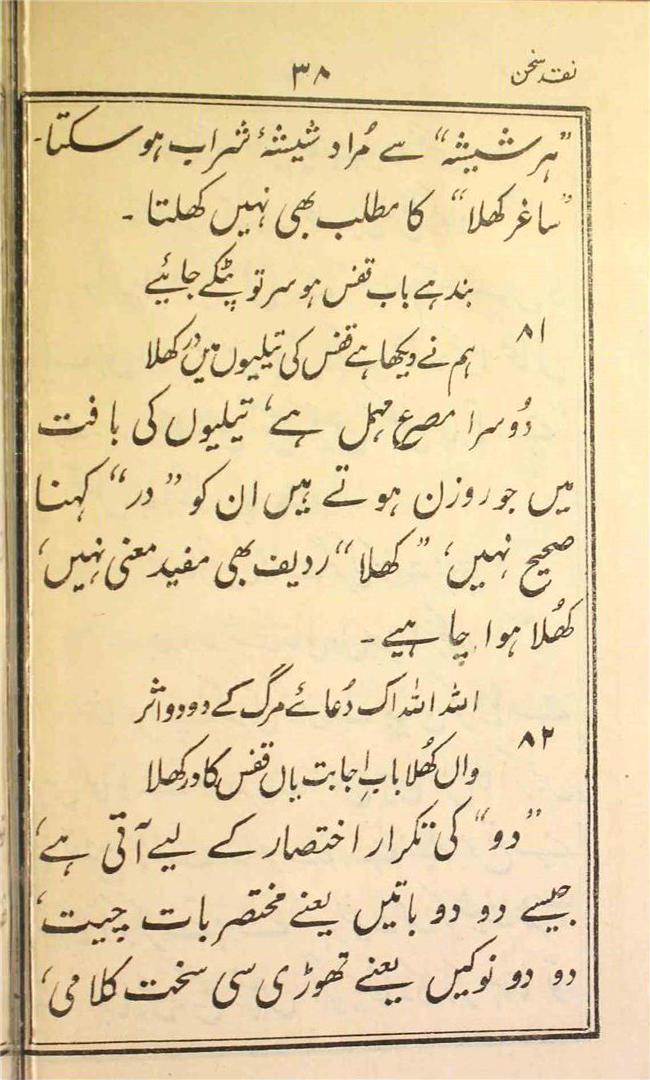 نقد سخن
۳۸
”ہر شیشہ“ سے مُراد شیشۂ شراب ہو سکتا۔
”ساغر کھلا“ کا مطلب بھی نہیں کھلتا۔
بند ہے باب قفس ہو سر تو پٹکے جائیے
۸۱
ہم نے دیکھا ہے قفس کی تیلیوں میں در کھلا
دُوسرا مصرع مہمل ہے، تیلیوں کی بافت
میں جو روزن ہوتے ہیں ان کو ”در“ کہنا
صحیح نہیں، ”کھلا“ ردیف بھی مفید معنی نہیں،
کھُلا ہوا چاہیے۔
اللہ اللہ اک دُعائے مرگ کے دو دو اثر
۸۲
واں کھُلا بابِ اجابت یاں قفس کا در کھلا
”دو“ کی تکرار اختصار کے لیے آتی ہے،
جیسے دو دو باتیں یعنے مختصر بات چیت،
دو دو نوکیں یعنے تھوڑی سی سخت کلامی،